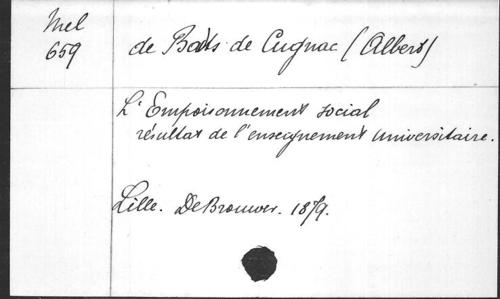 Mel
659
de Batz de Cugnac (Albert)
L'Empoisonnement social
résultat de l'enseignement universitaire.
Lille. DeBrouwer. 1879.